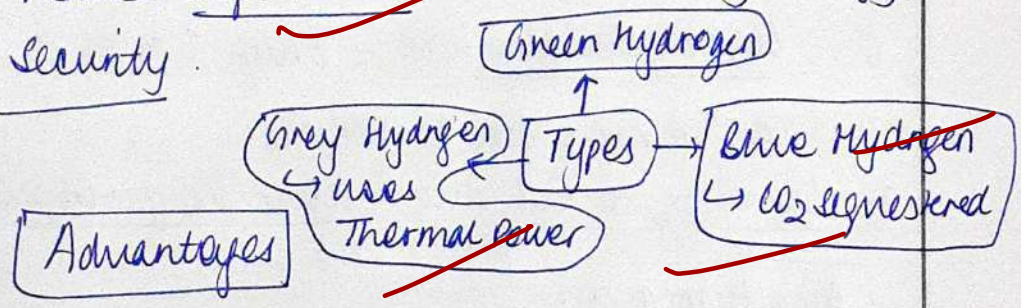 Security.
Green Hydrogen
Grey Hydrgen
↳ uses
Thermal Power
Types
Blue Hydrgen
↳ CO2 sequestered
Advantages